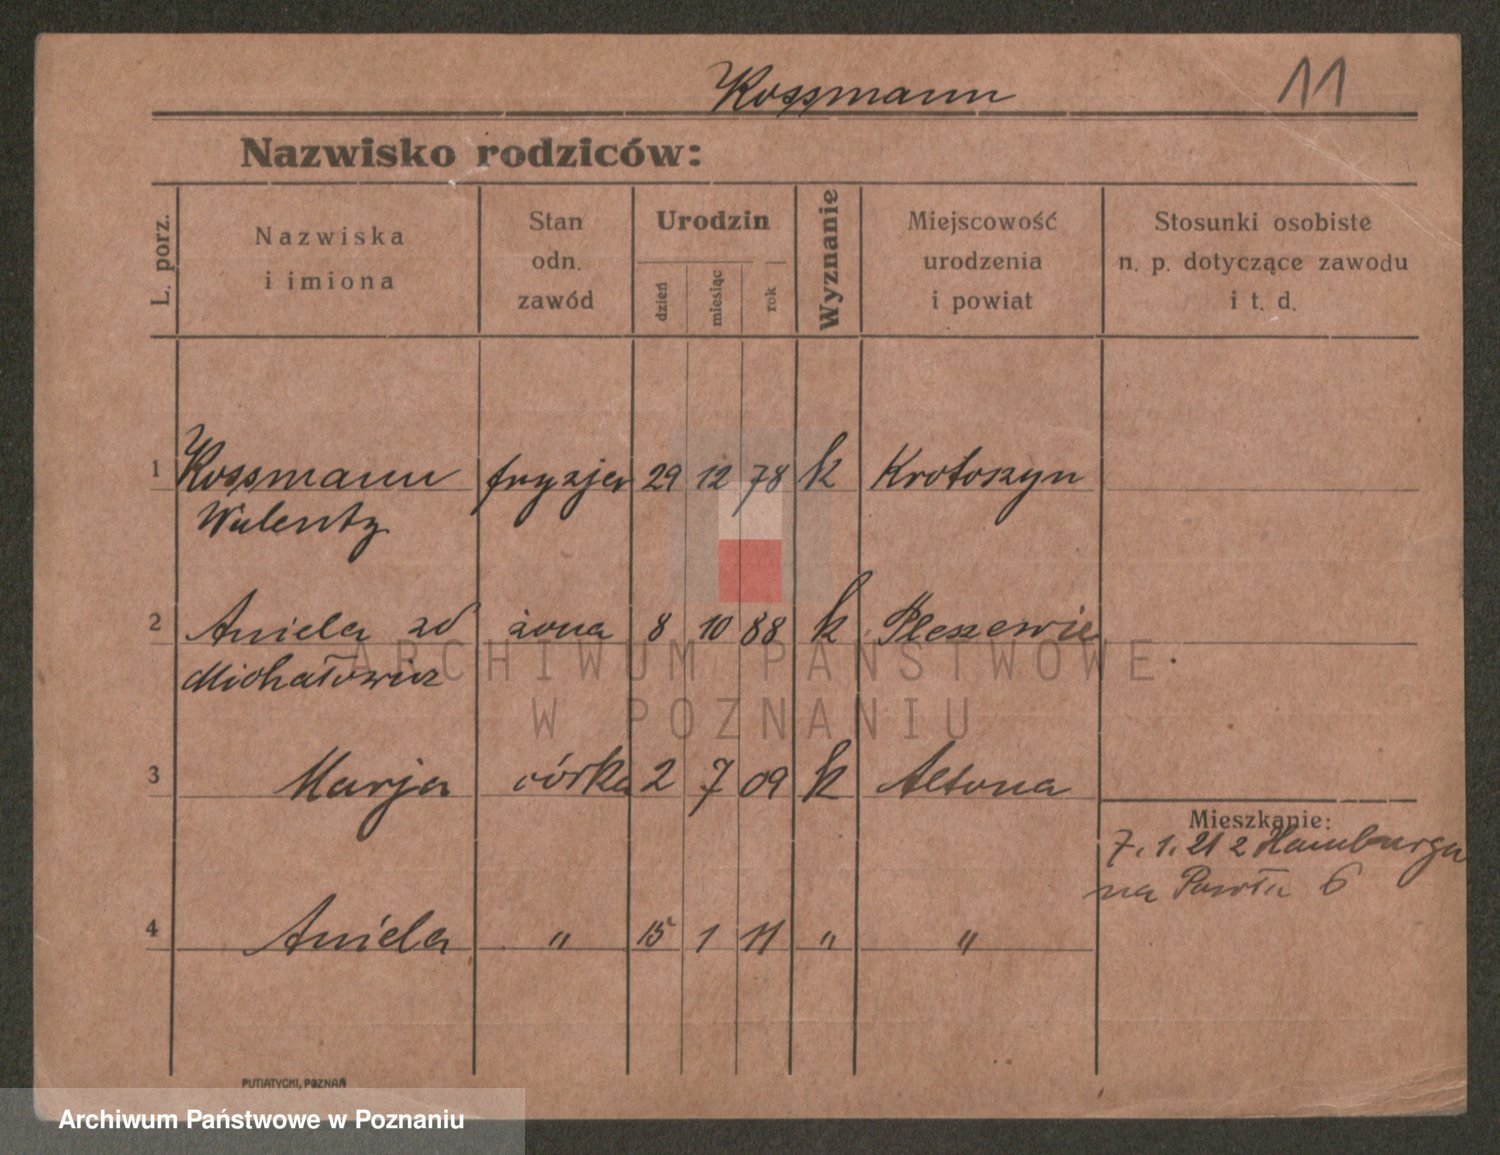 Kossmann 11
Nazwisko rodziców:
L. porz.
Nazwiska
i imiona
Stan
odn.
zawód
Urodzin
dzień
miesiąc
rok
Wyznanie
Miejscowość
urodzenia
i powiat
Stosunki osobiste
n. p. dotyczące zawodu
i t. d.
1 Kossmann fryzjer 29 12 78 k Krotoszyn
Walenty
2 Aniela zd żona 8 10 88 k Pleszewie
Michałowicz
3 Marja córka 2 7 09 k Altona
Mieszkanie:
7. 1. 21 z Hamburga
na Pawła 6
4 Aniela " 15 1 11 " "
ARCHIWUM PAŃSTWOWE
W POZNANIU
PUTIATYCKI, POZNAŃ
Archiwum Państwowe w Poznaniu